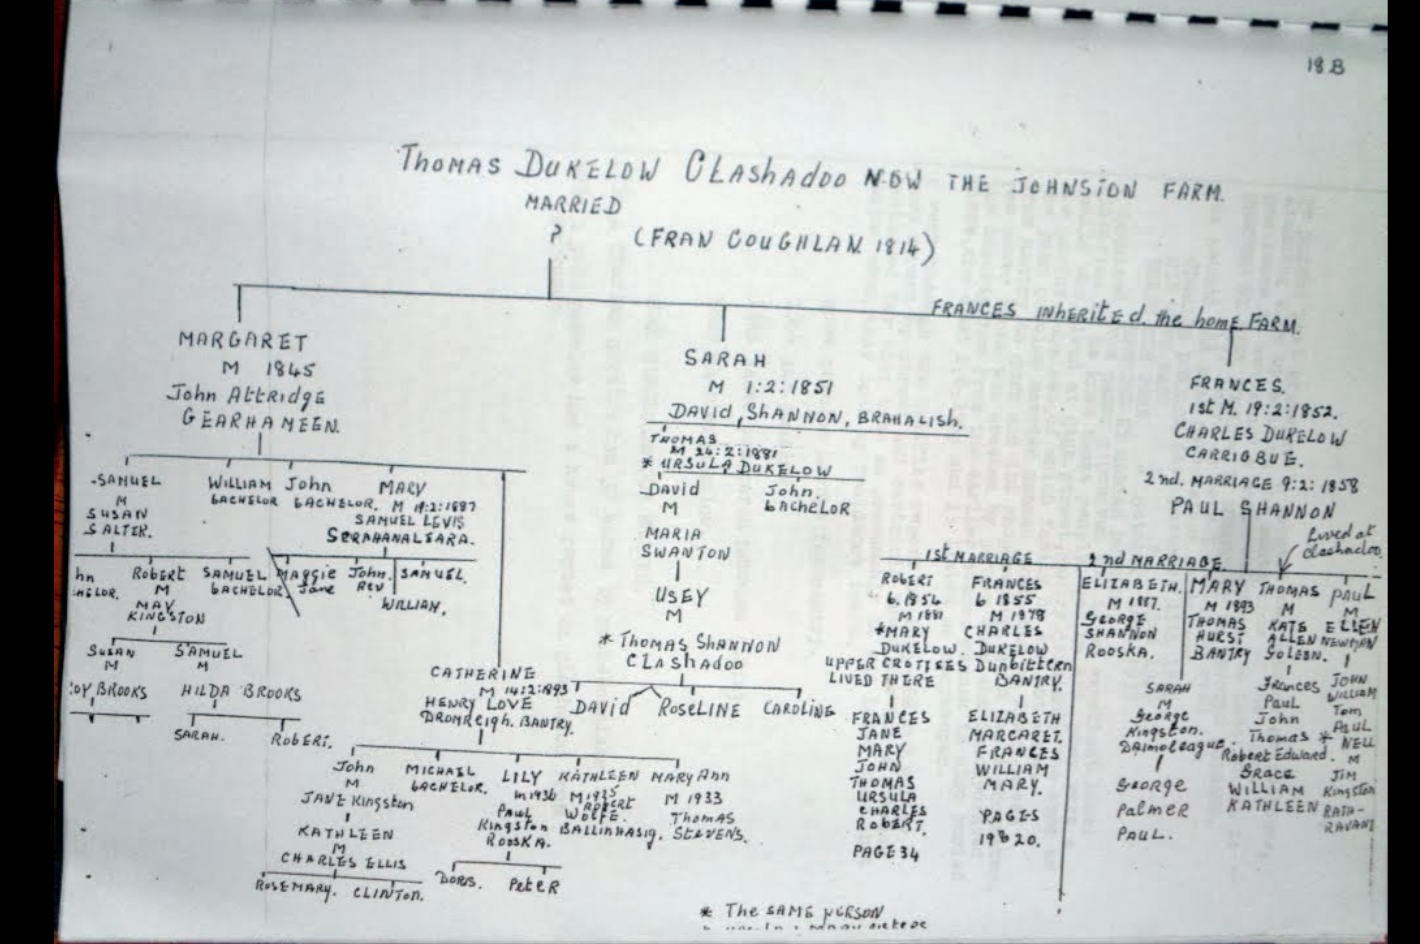 18 B
THOMAS DUKELOW CLASHADOO NOW THE JOHNSTON FARM.
MARRIED
?
(FRAN COUGHLAN 1814)
FRANCES INHERITED the home FARM.
MARGARET
M 1845
John Attridge
GEARHAMEEN.
SAMUEL
M
SUSAN
SALTER.
WILLIAM
BACHELOR
John
BACHELOR.
MARY
M 19:2:1887
SAMUEL LEVIS
hn
HELOR.
Robert
M
MAY
KINGSTON
SAMUEL
BACHELOR
Maggie
Jane
John.
Rev
SAMUEL.
WILLIAM.
SUSAN
M
OY BROOKS
SAMUEL
M
HILDA BROOKS
SARAH.
Robert.
CATHERINE
M 14:2:1893
HENRY LOVE
DROMREIGH. BANTRY.
John
M
JANE Kingston
KATHLEEN
M
CHARLES ELLIS
ROSEMARY. CLINTON.
MICHAEL
BACHELOR.
LILY
m 1936
PAUL
Kingston
ROOSKA.
DORIS. Peter
KATHLEEN
M 1935
Robert
WOLFE.
BALLINHASIG.
MARY Ann
M 1933
Thomas
STEVENS.
SARAH
M 1:2:1851
DAVID, SHANNON, BRAHALISH.
THOMAS
M 24:2:1881
* URSULA DUKELOW
David
M
MARIA
SWANTON
USEY
M
* Thomas SHANNON
CLASHADOO
John.
bACHELOR
David ROSELINE CAROLINE
FRANCES.
1st M. 19:2:1852.
CHARLES DUKELOW
CARRIGBUE.
2nd. MARRIAGE 9:2:1858
PAUL SHANNON
Lived at
Clashadoo.
1ST MARRIAGE
ROBERT
b. 1854
M 1881
*MARY
DUKELOW
UPPER CROTTEES
LIVED THERE
FRANCES
JANE
MARY
JOHN
THOMAS
URSULA
CHARLES
ROBERT.
PAGE 34
FRANCES
b 1855
M 1878
CHARLES
DUKELOW
Dunbittern
BANTRY.
ELIZABETH
MARGARET.
FRANCES
WILLIAM
MARY.
PAGES
19 & 20.
2nd MARRIAGE
ELIZABETH.
M 1887.
GEORGE
SHANNON
ROOSKA.
MARY
M 1893
THOMAS
HURST
BANTRY
THOMAS
M
KATE
ALLEN
GOLEEN.
Frances
Paul
John
Thomas *
Robert Edward.
GRACE
WILLIAM
KATHLEEN
PAUL
M
ELLEN
NEWMAN
JOHN
WILLIAM
Tom
PAUL
NELL
M
JIM
Kingston
RATH-
RAVANE
SARAH
M
George
Kingston.
DRIMOLEAGUE.
George
Palmer
PAUL.
* The SAME PERSON